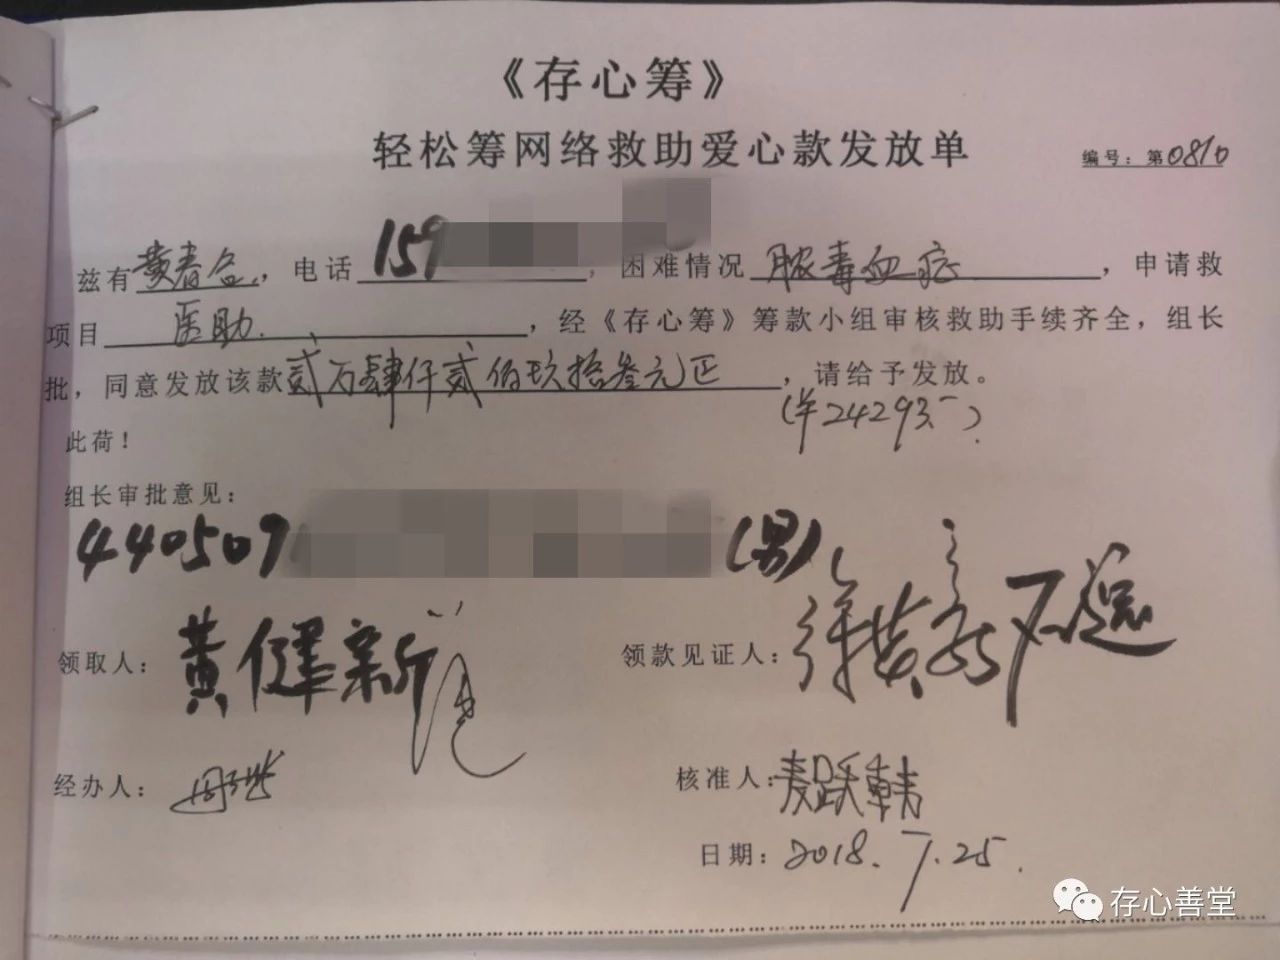 《存心筹》
轻松筹网络救助爱心款发放单
编号：第0810
兹有黄春 ，电话159 ，困难情况脓毒血症，申请救
项目医助．，经《存心筹》筹款小组审核救助手续齐全，组长
批，同意发放该款贰万肆仟贰佰玖拾叁元正，请给予发放。
(¥24293.一)．
此荷！
组长审批意见：
440509 (男)
领取人：黄健新
领款见证人：
经办人：
核准人：麦跃韩
日期：2018．7．25．
存心善堂